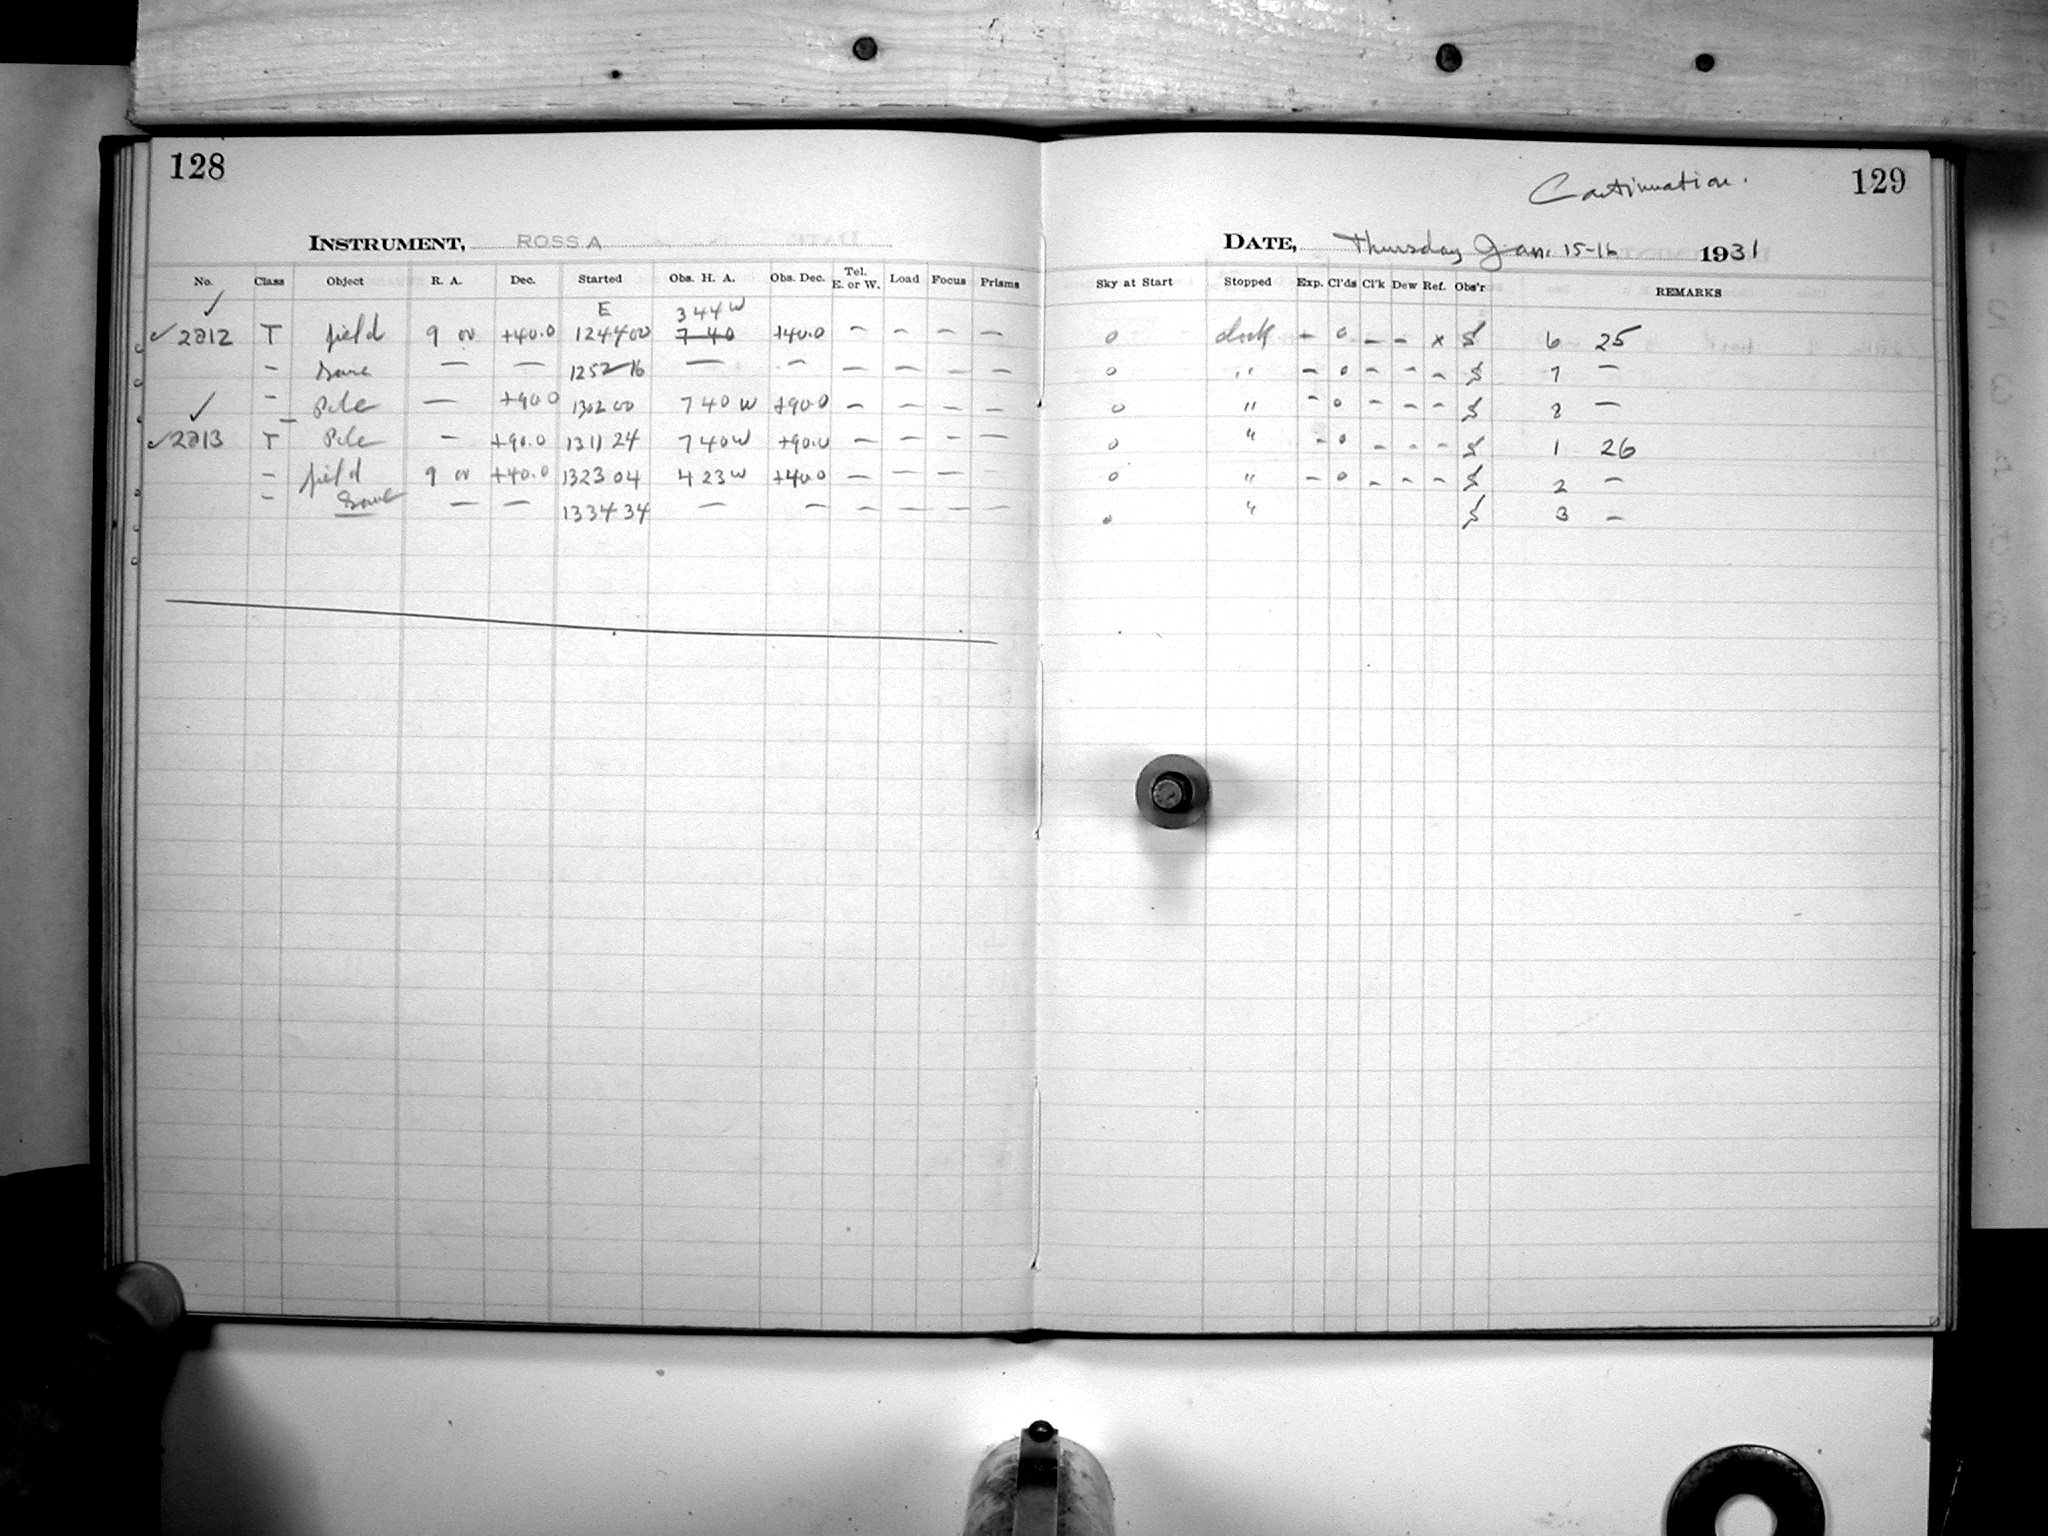 128
129
Continuation.
INSTRUMENT, ROSS A
DATE, Thursday Jan. 15-16 1931
No. Class Object R. A. Dec. Started Obs. H. A. Obs. Dec. Tel. E. or W. Load Focus Prisms Sky at Start Stopped Exp. Cl'ds Cl'k Dew Ref. Obs'r REMARKS
✓ E 344 W
✓ 2812 T field 9 00 +40.0 124400 7 40 +40.0 — — — — 0 clock — 0 — — x S 6 25
— Same — — 125216 — — — — — — 0 " — 0 — — — S 7 —
✓ — Pole — +90.0 130200 7 40 W +90.0 — — — — 0 " — 0 — — — S 8 —
✓ 2813 T Pole — +90.0 131124 7 40 W +90.0 — — — — 0 " — 0 — — — S 1 26
— field 9 00 +40.0 132304 4 23 W +40.0 — — — — 0 " — 0 — — — S 2 —
— Same — — 133434 — — — — — — 0 " S 3 —